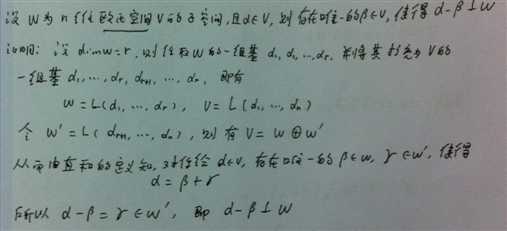 设 W 为 n 维欧氏空间 V 的子空间,且 α∈V, 则存在唯一的 β∈V, 使得 α-β⊥W
证明: 设 dimW=r, 则任取 W 的一组基 α₁, α₂, …, αᵣ, 并将其扩充为 V 的
一组基 α₁, …, αᵣ, αᵣ₊₁, …, αₙ, 即有
W = L(α₁, …, αᵣ), V = L(α₁, …, αₙ)
令 W' = L(αᵣ₊₁, …, αₙ), 则有 V = W ⊕ W'
从而由直和的定义知, 对任给 α∈V, 存在唯一的 β∈W, γ∈W', 使得
α = β + γ
所以 α-β = γ ∈ W', 即 α-β⊥W